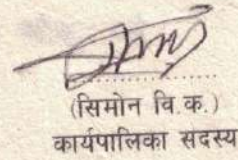 (सिमोन वि.क.)
कार्यपालिका सदस्य